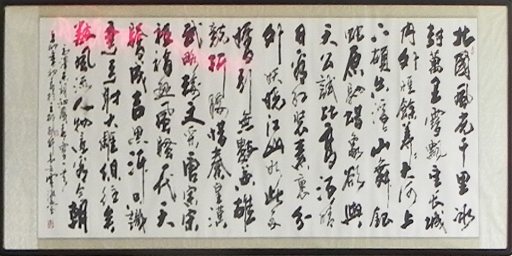 北國風光千里冰
封萬里雪飄望長城
內外惟餘莽莽大河上
下頓失滔滔山舞銀
蛇原馳蠟象欲與
天公試比高須晴
日看紅裝素裹分
外妖嬈江山如此多
嬌引無數英雄
競折腰惜秦皇漢
武略輸文采唐宗宋
祖稍遜風騷一代天
驕成吉思汗只識
彎弓射大雕俱往矣
數風流人物還看今朝